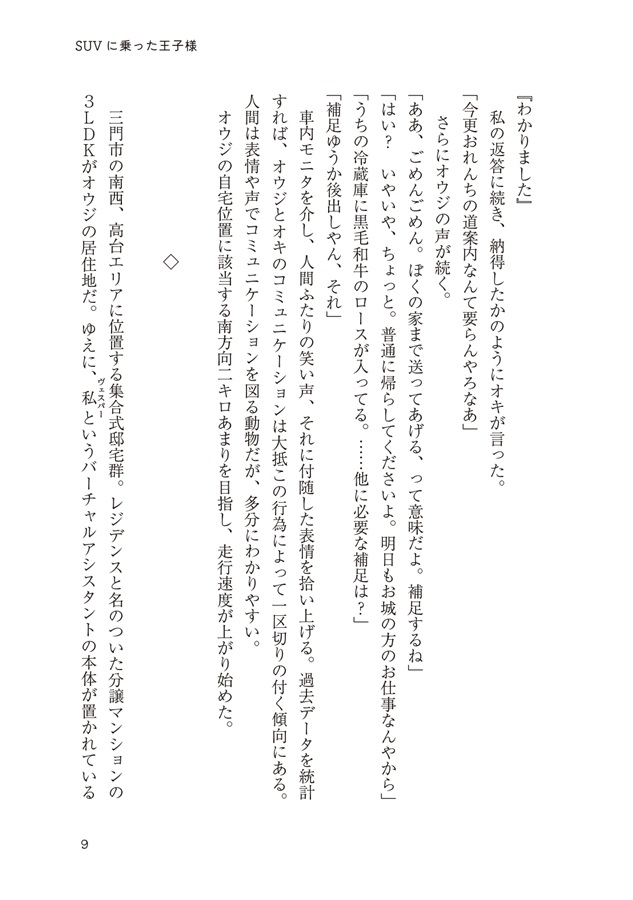 SUVに乗った王子様
『わかりました』
　私の返答に続き、納得したかのようにオキが言った。
「今更おれんちの道案内なんて要らんやろなあ」
　さらにオウジの声が続く。
「ああ、ごめんごめん。ぼくの家まで送ってあげる、って意味だよ。補足するね」
「はい？　いやいや、ちょっと。普通に帰らしてくださいよ。明日もお城の方のお仕事なんやから」
「うちの冷蔵庫に黒毛和牛のロースが入ってる。……他に必要な補足は？」
「補足ゆうか後出しやん、それ」
　車内モニタを介し、人間ふたりの笑い声、それに付随した表情を拾い上げる。過去データを統計
すれば、オウジとオキのコミュニケーションは大抵この行為によって一区切りの付く傾向にある。
人間は表情や声でコミュニケーションを図る動物だが、多分にわかりやすい。
　オウジの自宅位置に該当する南方向二キロあまりを目指し、走行速度が上がり始めた。
◇
　三門市の南西、高台エリアに位置する集合式邸宅群。レジデンスと名のついた分譲マンションの
３ＬＤＫがオウジの居住地だ。ゆえに、私というバーチャルアシスタントの本体が置かれている
ヴェスパー
9